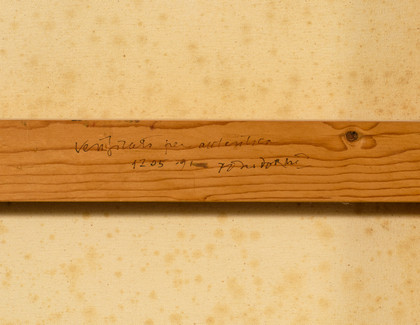 Verificato per autentico
12 05 91